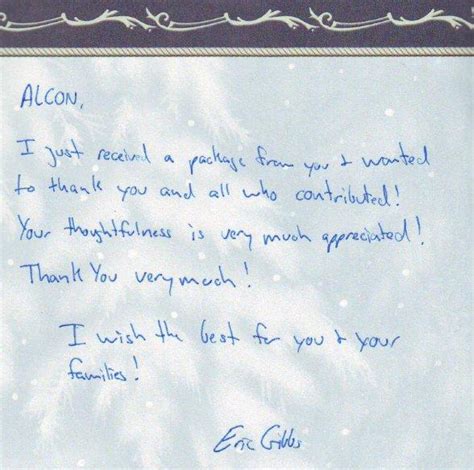 ALCON,
I just received a package from you & wanted
to thank you and all who contributed!
Your thoughtfulness is very much appreciated!
Thank You very much!
I wish the best for you & your
families!
Eric Gibbs